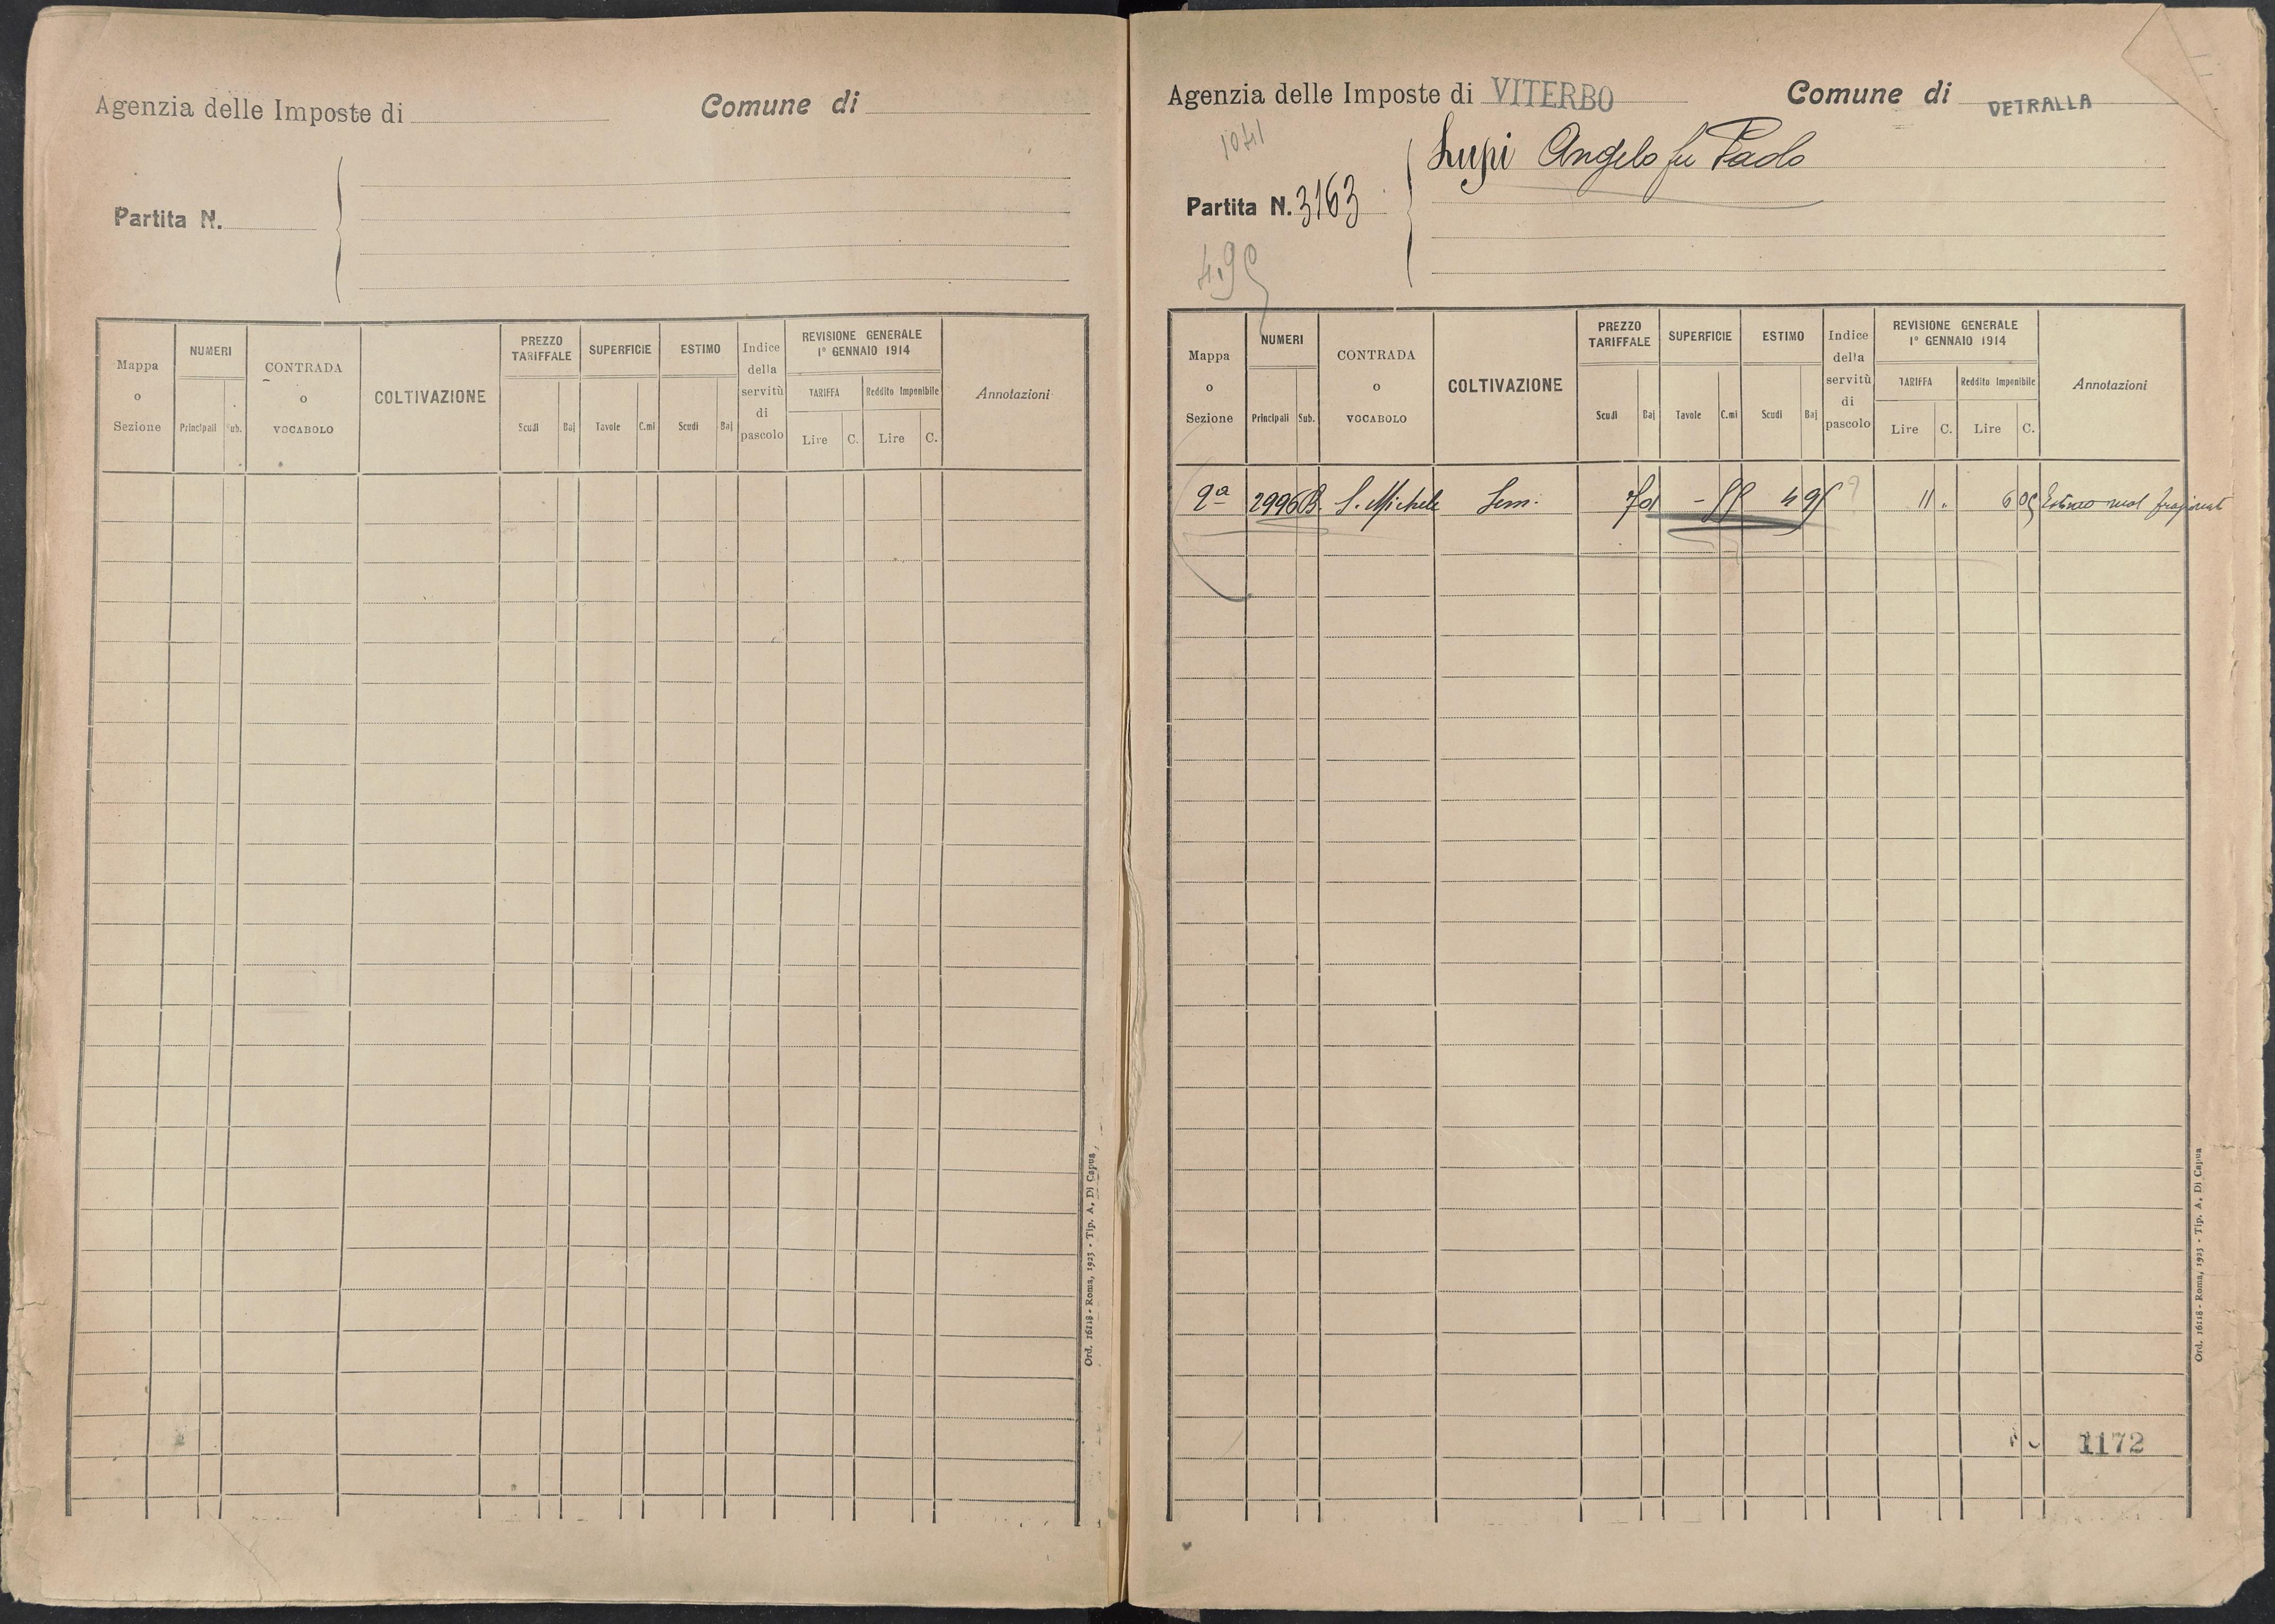 Agenzia delle Imposte di
Comune di
Partita N.
Mappa o Sezione
NUMERI
Principali
Sub.
CONTRADA o VOCABOLO
COLTIVAZIONE
PREZZO TARIFFALE
Scudi
Baj
SUPERFICIE
Tavole
C.mi
ESTIMO
Scudi
Baj
Indice della servitù di pascolo
REVISIONE GENERALE
1° GENNAIO 1914
TARIFFA
Lire
C.
Reddito Imponibile
Lire
C.
Annotazioni
Ord. 16118 - Roma, 1923 - Tip. A. Di Capua
Agenzia delle Imposte di VITERBO
Comune di VETRALLA
1041
Lupi Angelo fu Paolo
Partita N. 3163
4.95
Mappa o Sezione
NUMERI
Principali
Sub.
CONTRADA o VOCABOLO
COLTIVAZIONE
PREZZO TARIFFALE
Scudi
Baj
SUPERFICIE
Tavole
C.mi
ESTIMO
Scudi
Baj
Indice della servitù di pascolo
REVISIONE GENERALE
1° GENNAIO 1914
TARIFFA
Lire
C.
Reddito Imponibile
Lire
C.
Annotazioni
2ª 2996 B. S. Michele Sem. - 55 4 95 11 . 6 05 Estimo mal
1172
Ord. 16118 - Roma, 1923 - Tip. A. Di Capua